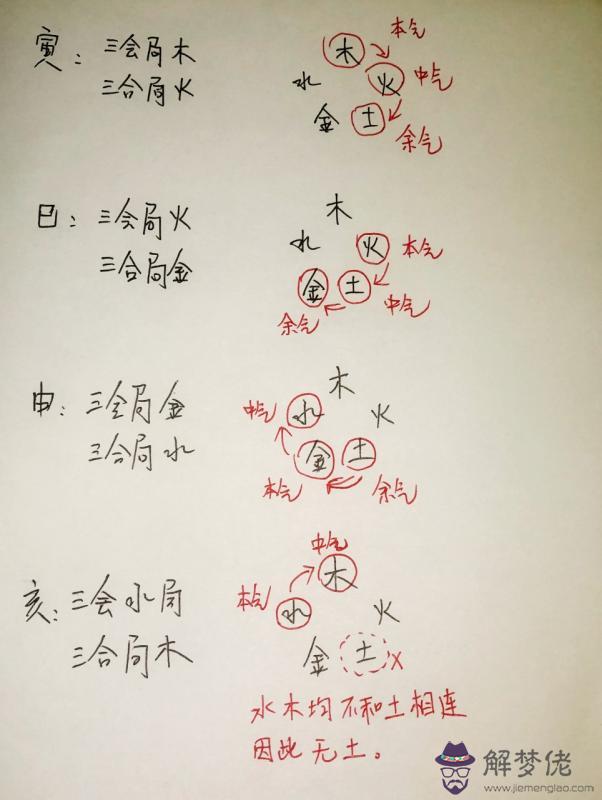 本气
寅：三会局木
木
三合局火
水
火
中气
金
土
余气
木
巳：三会局火
水
火
本气
三合局金
金
土
中气
余气
木
申：三会局金
中气
水
火
三合局水
金
土
本气
余气
中气
木
亥：三会水局
本气
水
火
三合局木
金
土
x
水木均不和土相连
因此无土。
解梦佬
www.jiemenglao.com